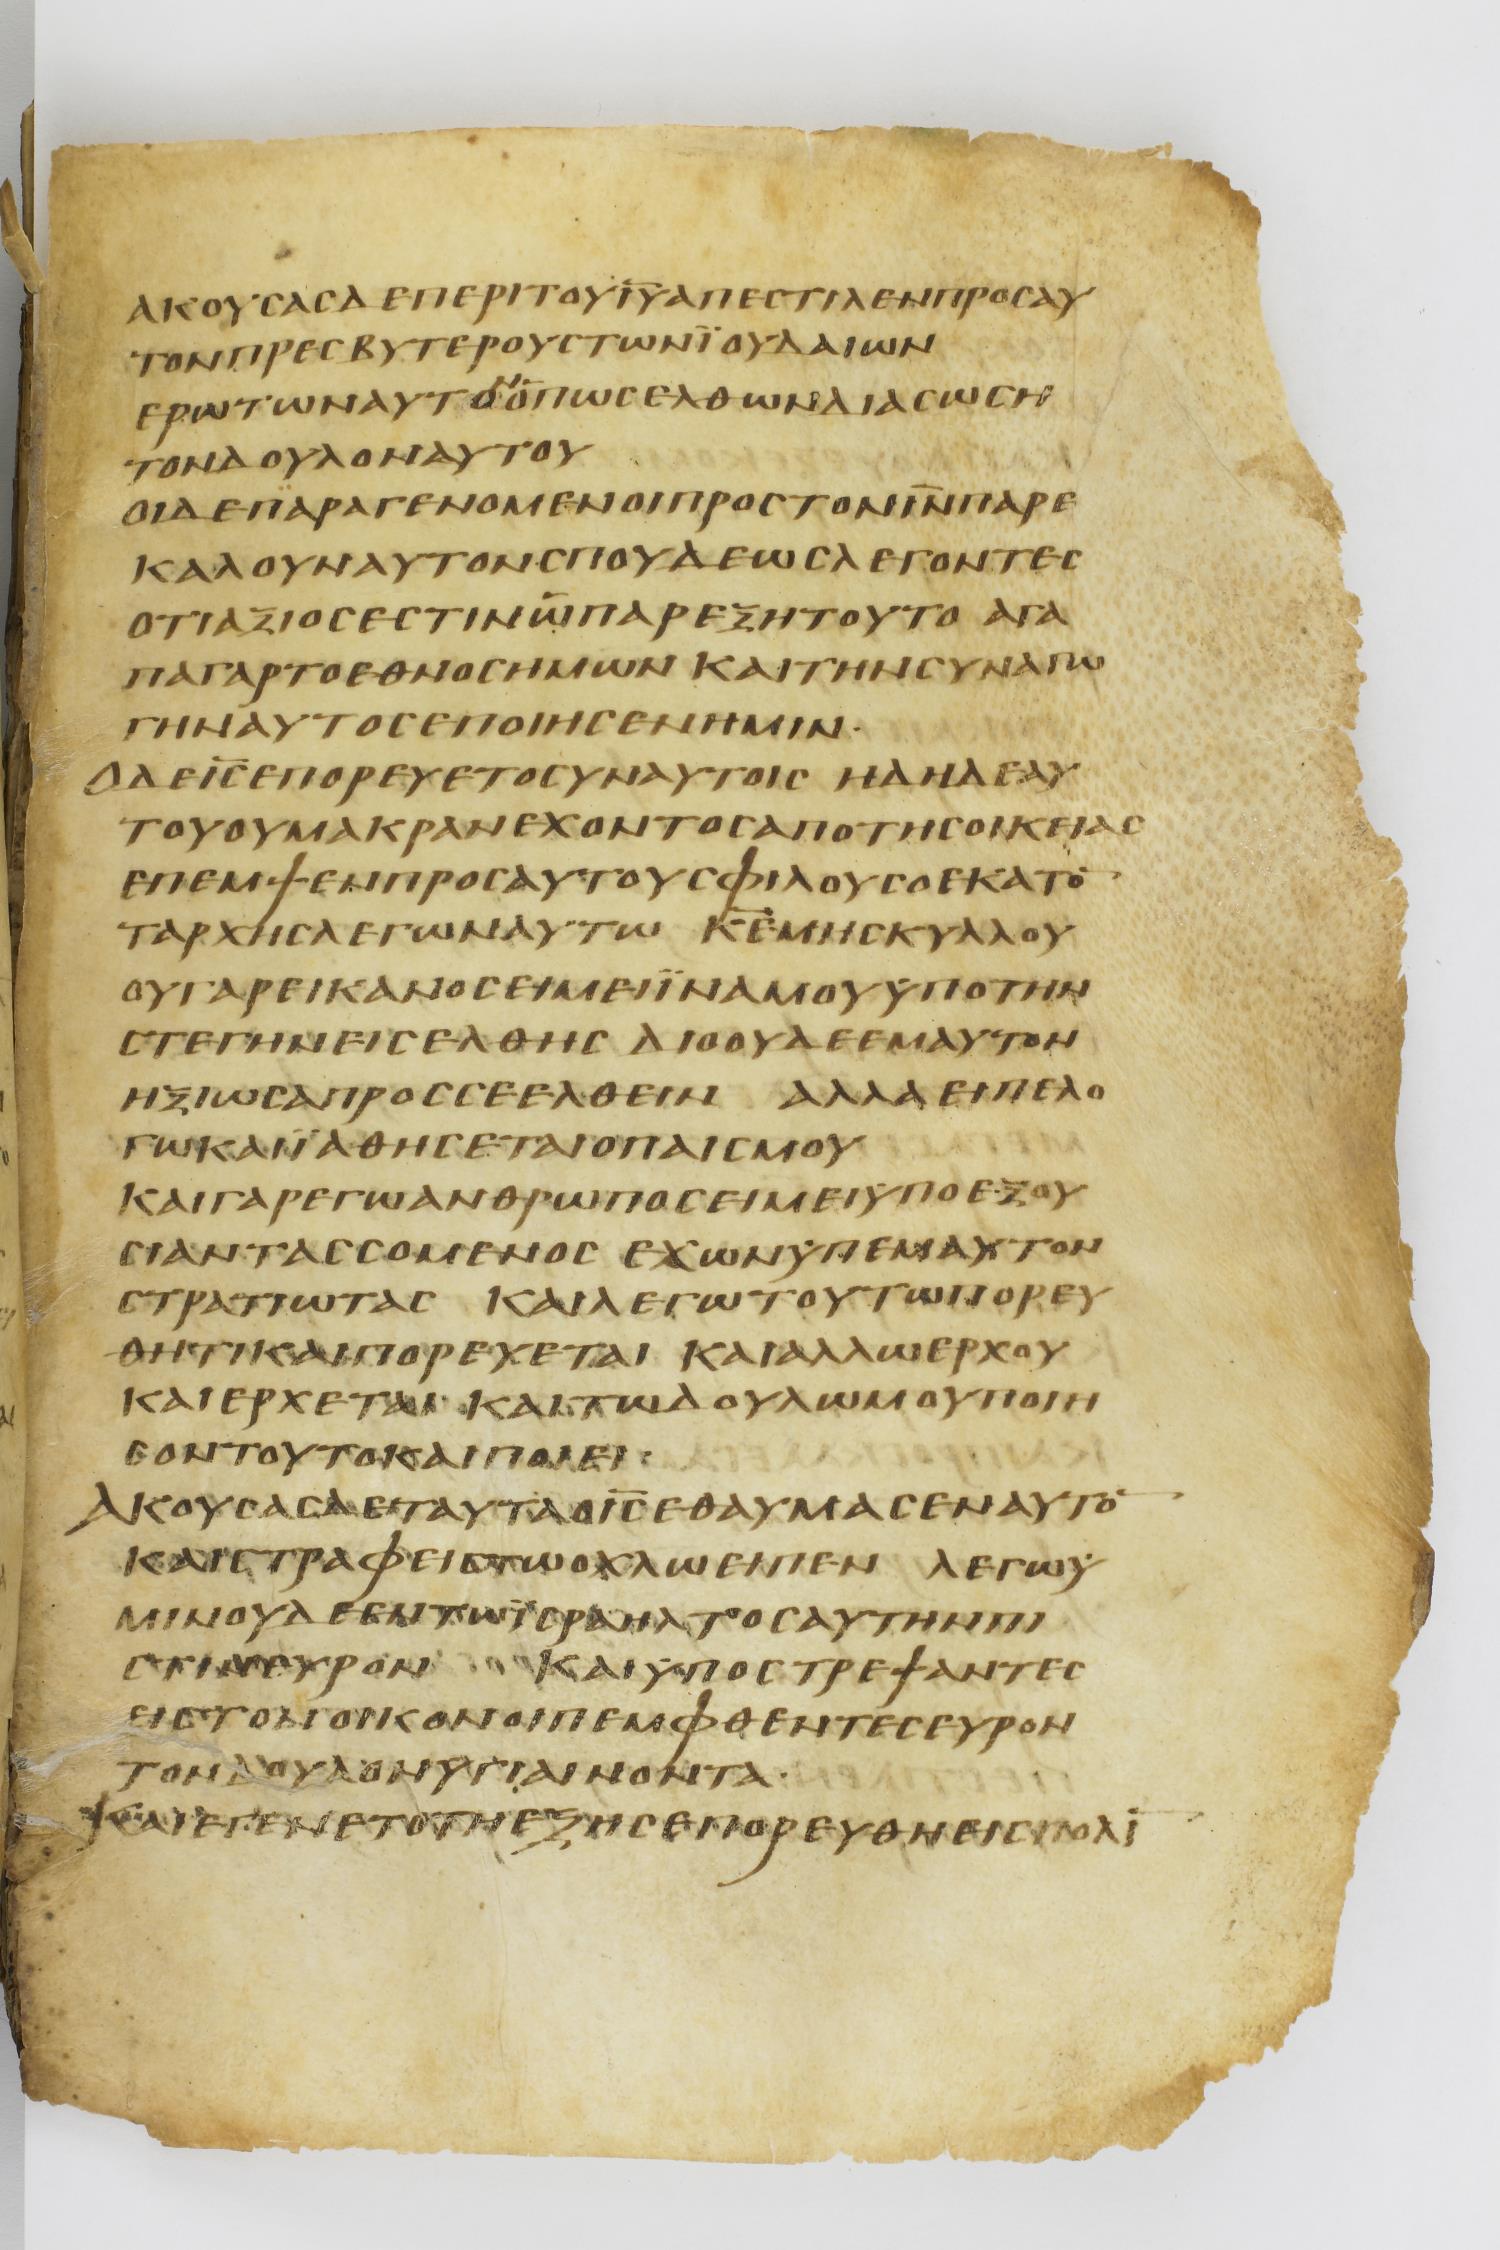 ΑΚΟΥСΑСΔΕΠΕΡΙΤΟΥΙ̅Υ̅ΑΠΕСΤΙΛΕΝΠΡΟСΑΥ
ΤΟΝΠΡΕСΒΥΤΕΡΟΥСΤΩΝΪΟΥΔΑΙΩΝ
ΕΡΩΤΩΝΑΥΤΟΝΟΠΩСΕΛΘΩΝΔΙΑСΩСΗ
ΤΟΝΔΟΥΛΟΝΑΥΤΟΥ
ΟΙΔΕΠΑΡΑΓΕΝΟΜΕΝΟΙΠΡΟСΤΟΝΙ̅Ν̅ΠΑΡΕ
ΚΑΛΟΥΝΑΥΤΟΝСΠΟΥΔΕΩСΛΕΓΟΝΤΕС
ΟΤΙΑΞΙΟСΕСΤΙΝΩΠΑΡΕΞΗΤΟΥΤΟ ΑΓΑ
ΠΑΓΑΡΤΟΕΘΝΟСΗΜΩΝ ΚΑΙΤΗΝСΥΝΑΓΩ
ΓΗΝΑΥΤΟСΕΠΟΙΗСΕΝΗΜΙΝ·
ΟΔΕΙ̅С̅ΕΠΟΡΕΥΕΤΟСΥΝΑΥΤΟΙС ΗΔΗΔΕΑΥ
ΤΟΥΟΥΜΑΚΡΑΝΕΧΟΝΤΟСΑΠΟΤΗСΟΙΚΕΙΑС
ΕΠΕΜΨΕΝΠΡΟСΑΥΤΟΥСΦΙΛΟΥСΟΕΚΑΤΟ̅
ΤΑΡΧΗСΛΕΓΩΝΑΥΤΩ Κ̅Ε̅ΜΗСΚΥΛΛΟΥ
ΟΥΓΑΡΕΙΚΑΝΟСΕΙΜΕΙΪΝΑΜΟΥΫΠΟΤΗΝ
СΤΕΓΗΝΕΙСΕΛΘΗС ΔΙΟΟΥΔΕΕΜΑΥΤΟΝ
ΗΞΙΩСΑΠΡΟССΕΕΛΘΕΙΝ ΑΛΛΑΕΙΠΕΛΟ
ΓΩΚΑΙΪΑΘΗСΕΤΑΙΟΠΑΙСΜΟΥ
ΚΑΙΓΑΡΕΓΩΑΝΘΡΩΠΟСΕΙΜΕΙΫΠΟΕΞΟΥ
СΙΑΝΤΑССΟΜΕΝΟС ΕΧΩΝΫΠΕΜΑΥΤΟΝ
СΤΡΑΤΙΩΤΑС ΚΑΙΛΕΓΩΤΟΥΤΩΠΟΡΕΥ
ΘΗΤΙΚΑΙΠΟΡΕΥΕΤΑΙ ΚΑΙΑΛΛΩΕΡΧΟΥ
ΚΑΙΕΡΧΕΤΑΙ ΚΑΙΤΩΔΟΥΛΩΜΟΥΠΟΙΗ
СΟΝΤΟΥΤΟΚΑΙΠΟΙΕΙ·
ΑΚΟΥСΑСΔΕΤΑΥΤΑΟΙ̅С̅ΕΘΑΥΜΑСΕΝΑΥΤΟ̅
ΚΑΙСΤΡΑΦΕΙСΤΩΟΧΛΩΕΙΠΕΝ ΛΕΓΩΫ
ΜΙΝΟΥΔΕΕΝΤΩΪСΡΑΗΛΤΟСΑΥΤΗΝΠΙ
СΤΙΝΕΥΡΟΝ ΚΑΙΫΠΟСΤΡΕΨΑΝΤΕС
ΕΙСΤΟΝΟΙΚΟΝΟΙΠΕΜΦΘΕΝΤΕСΕΥΡΟΝ
ΤΟΝΔΟΥΛΟΝΥΓΙΑΙΝΟΝΤΑ·
ΚΑΙΕΓΕΝΕΤΟΤΗΕΞΗСΕΠΟΡΕΥΘΗΕΙСΠΟΛΙ̅